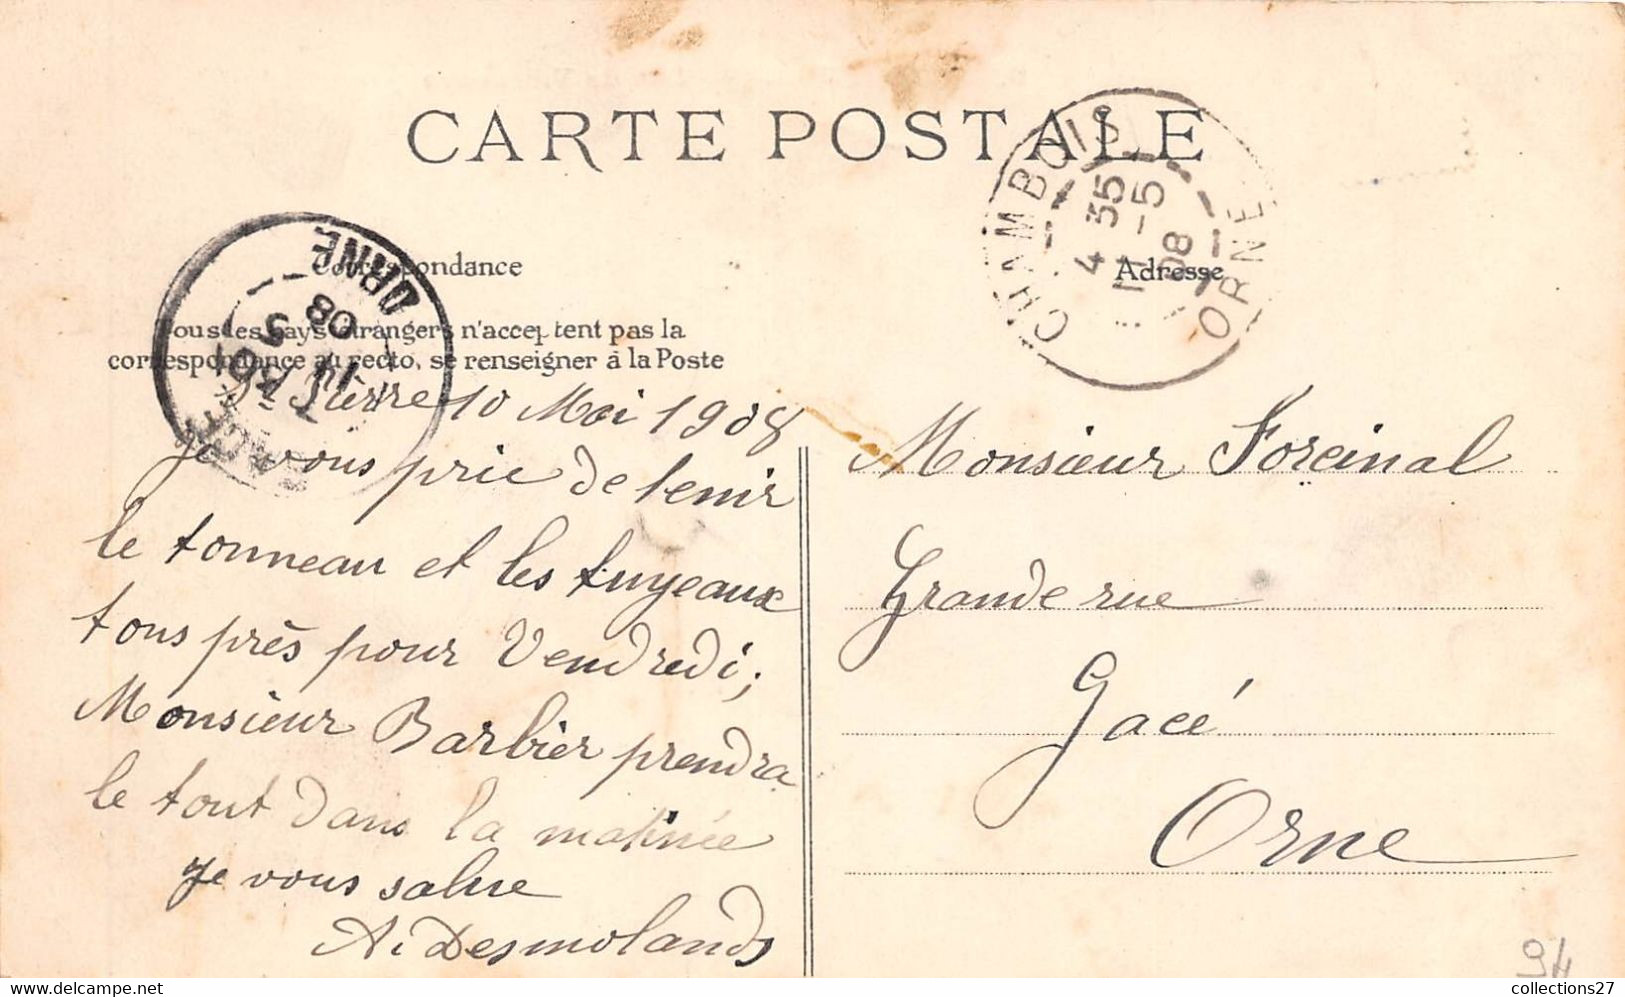 CARTE POSTALE
Correspondance
Tous les pays étrangers n'acceptent pas la
correspondance au recto, se renseigner à la Poste
Adresse
CHAMBOIS
4 35
11 -5
08
ORNE
GACÉ
11
5
08
ORNE
St Pierre 10 Mai 1908
Je vous prie de tenir
le tonneau et les tuyeaux
tous près pour Vendredi;
Monsieur Barbier prendra
le tout dans la matinée
Je vous salue
A. Desmolands
Monsieur Forcinal
Grande rue
Gacé
Orne
94
collections27